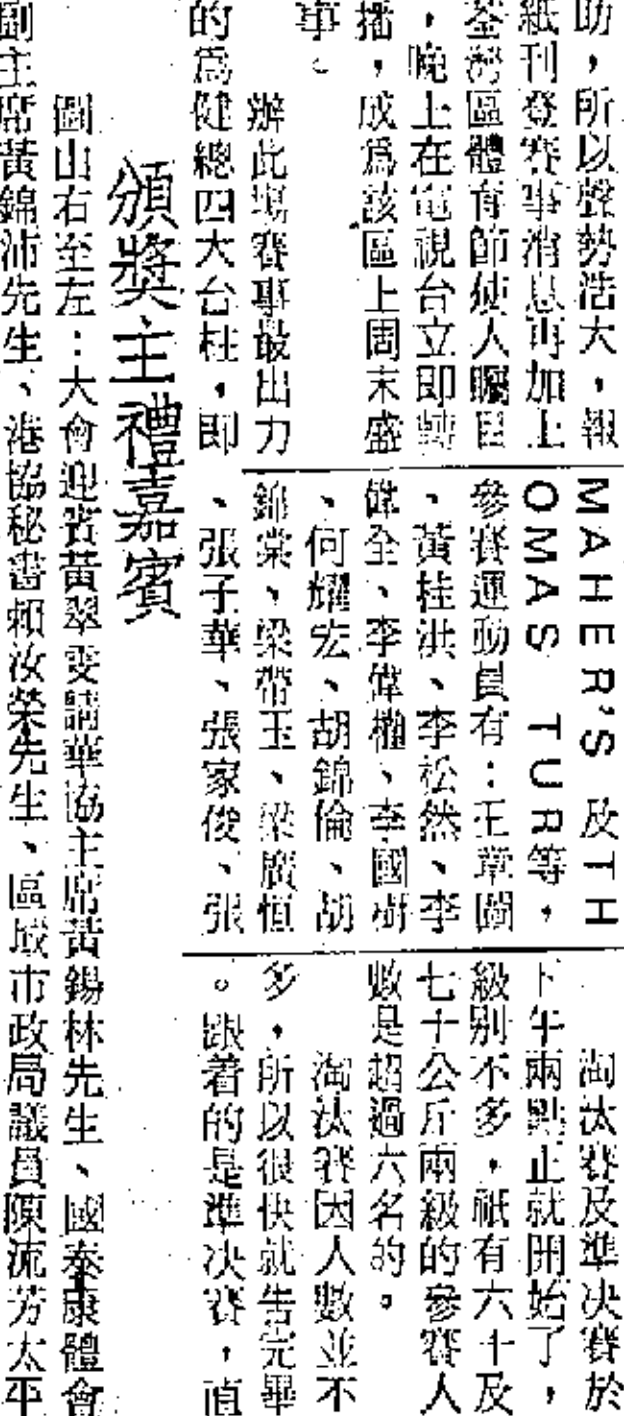 助，所以聲勢浩大，報
紙刊登賽事消息再加上
荃灣區體育節使人矚目
，晚上在電視台立即轉
播，成爲該區上周末盛
事。
辦此場賽事最出力
的爲健總四大台柱，即
MAHER'S 及TH
OMAS TUR等，
參賽運動員有：王章圖
、黃桂洪、李松然、李
偉全、李偉權、李國樹
、何耀宏、胡錦倫、胡
錦棠、梁帶玉、梁廣恒
、張子華、張家俊、張
淘汰賽及準决賽於
下午兩點正就開始了，
級別不多，祇有六十及
七十公斤兩級的參賽人
數是超過六名的。
淘汰賽因人數並不
多，所以很快就告完畢
。跟着的是準决賽，直
頒獎主禮嘉賓
圖山右至左：大會迎賓黃翠雯請華協主席黃錫林先生、國泰康體會
副主席黃錦沛先生、港協秘書賴汝榮先生、區域市政局議員陳流芳太平